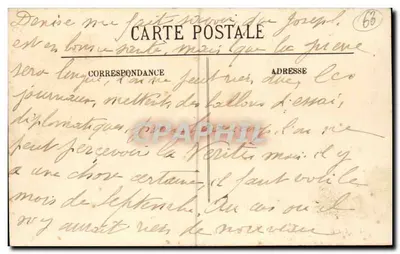 Denise me fait savoir que Joseph
60
est en bonne santé, mais que la guerre
CARTE POSTALE
CORRESPONDANCE
ADRESSE
sera longue, l'on ne peut rien dire, les
journaux, mettent des ballons d'essai
diplomatiques, l'on ne
CPAPHIL
peut percevoir la Vérité mais il y
a une chose certaine, il faut voir le
mois de Septembre. Au cas où il
n'y aurait rien de nouveau